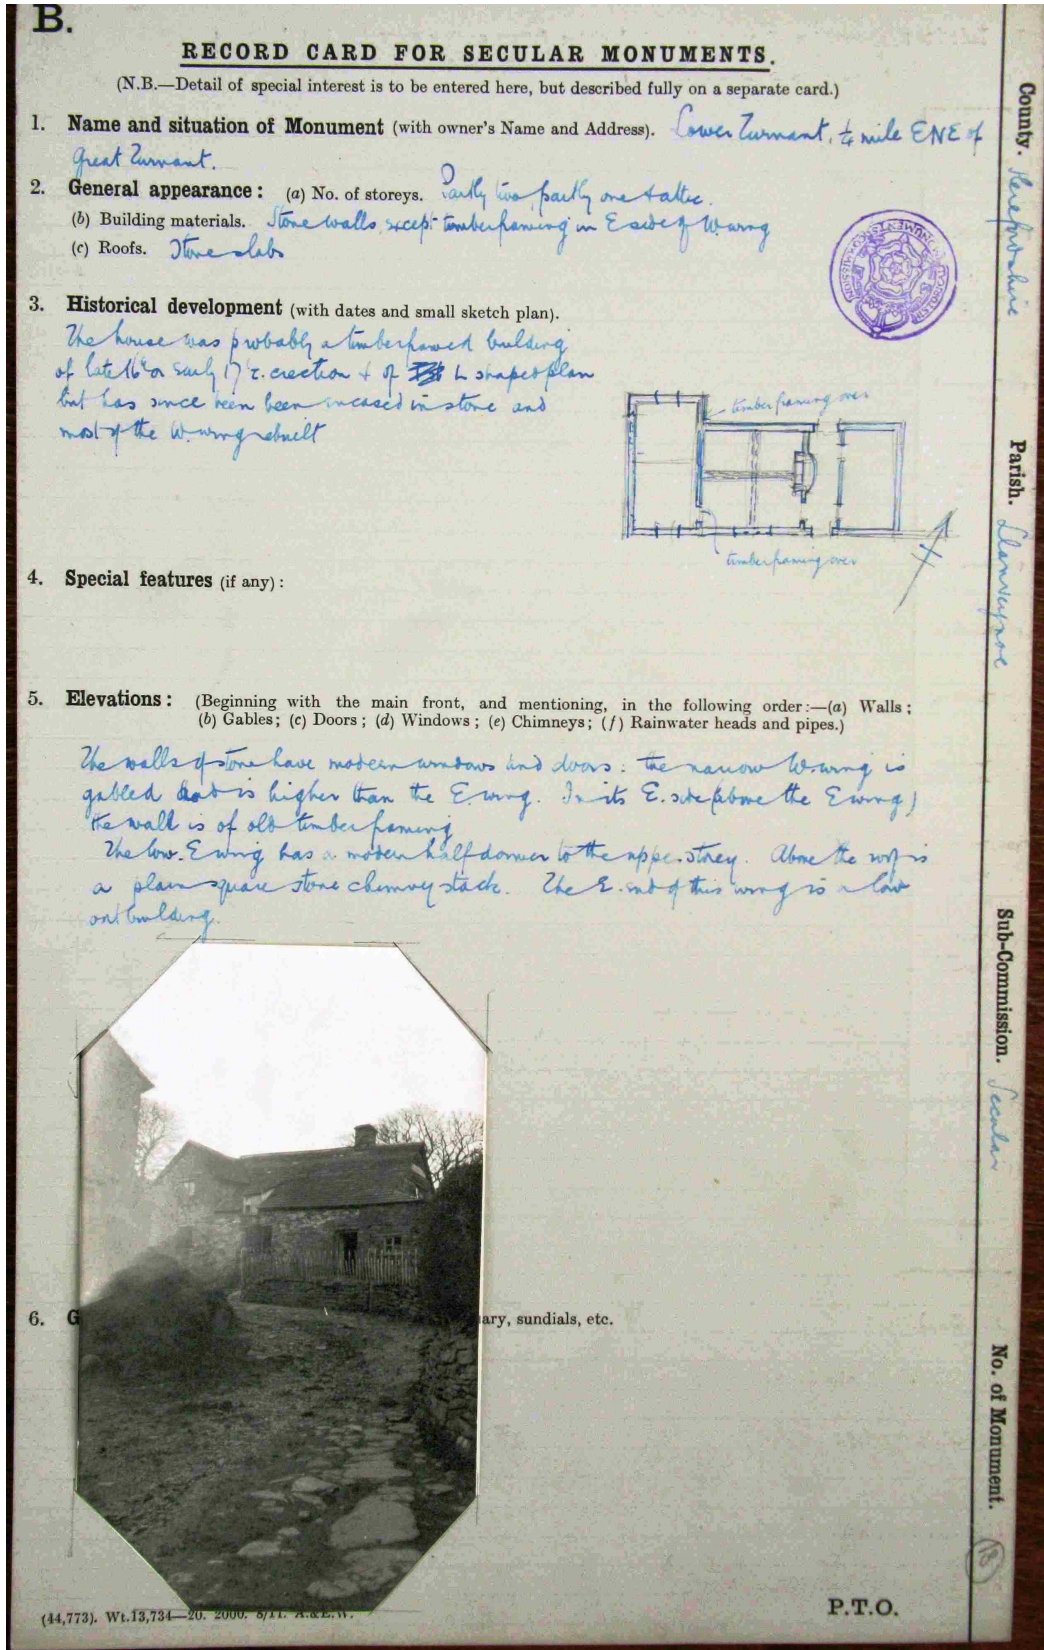 B.
RECORD CARD FOR SECULAR MONUMENTS.
(N.B.—Detail of special interest is to be entered here, but described fully on a separate card.)
1. Name and situation of Monument (with owner's Name and Address). Lower Turnant, ¼ mile ENE of
Great Turnant.
2. General appearance: (a) No. of storeys. Partly two, partly one & attic.
(b) Building materials. Stone walls except timber framing in E side of W. wing
(c) Roofs. Stone slabs
3. Historical development (with dates and small sketch plan).
The house was probably a timber framed building
of late 16th or early 17th c. erection & of L shaped plan
but has since been been incased in stone and
most of the W. wing rebuilt
timber framing over
timber framing over
4. Special features (if any):
5. Elevations: (Beginning with the main front, and mentioning, in the following order:—(a) Walls;
(b) Gables; (c) Doors; (d) Windows; (e) Chimneys; (f) Rainwater heads and pipes.)
The walls of stone have modern windows and doors: the narrow W. wing is
gabled and is higher than the E wing. In its E. side (above the E wing)
the wall is of old timber framing
The low E wing has a modern half dormer to the upper storey. Above the roof is
a plain square stone chimney stack. The E. end of this wing is a low
outbuilding.
6. G
ary, sundials, etc.
(44,773). Wt.13,734—20. 2000. 8/11. A.&E.W.
P.T.O.
County. Herefordshire
Parish. Llanveynoe
Sub-Commission. Secular
No. of Monument. 18